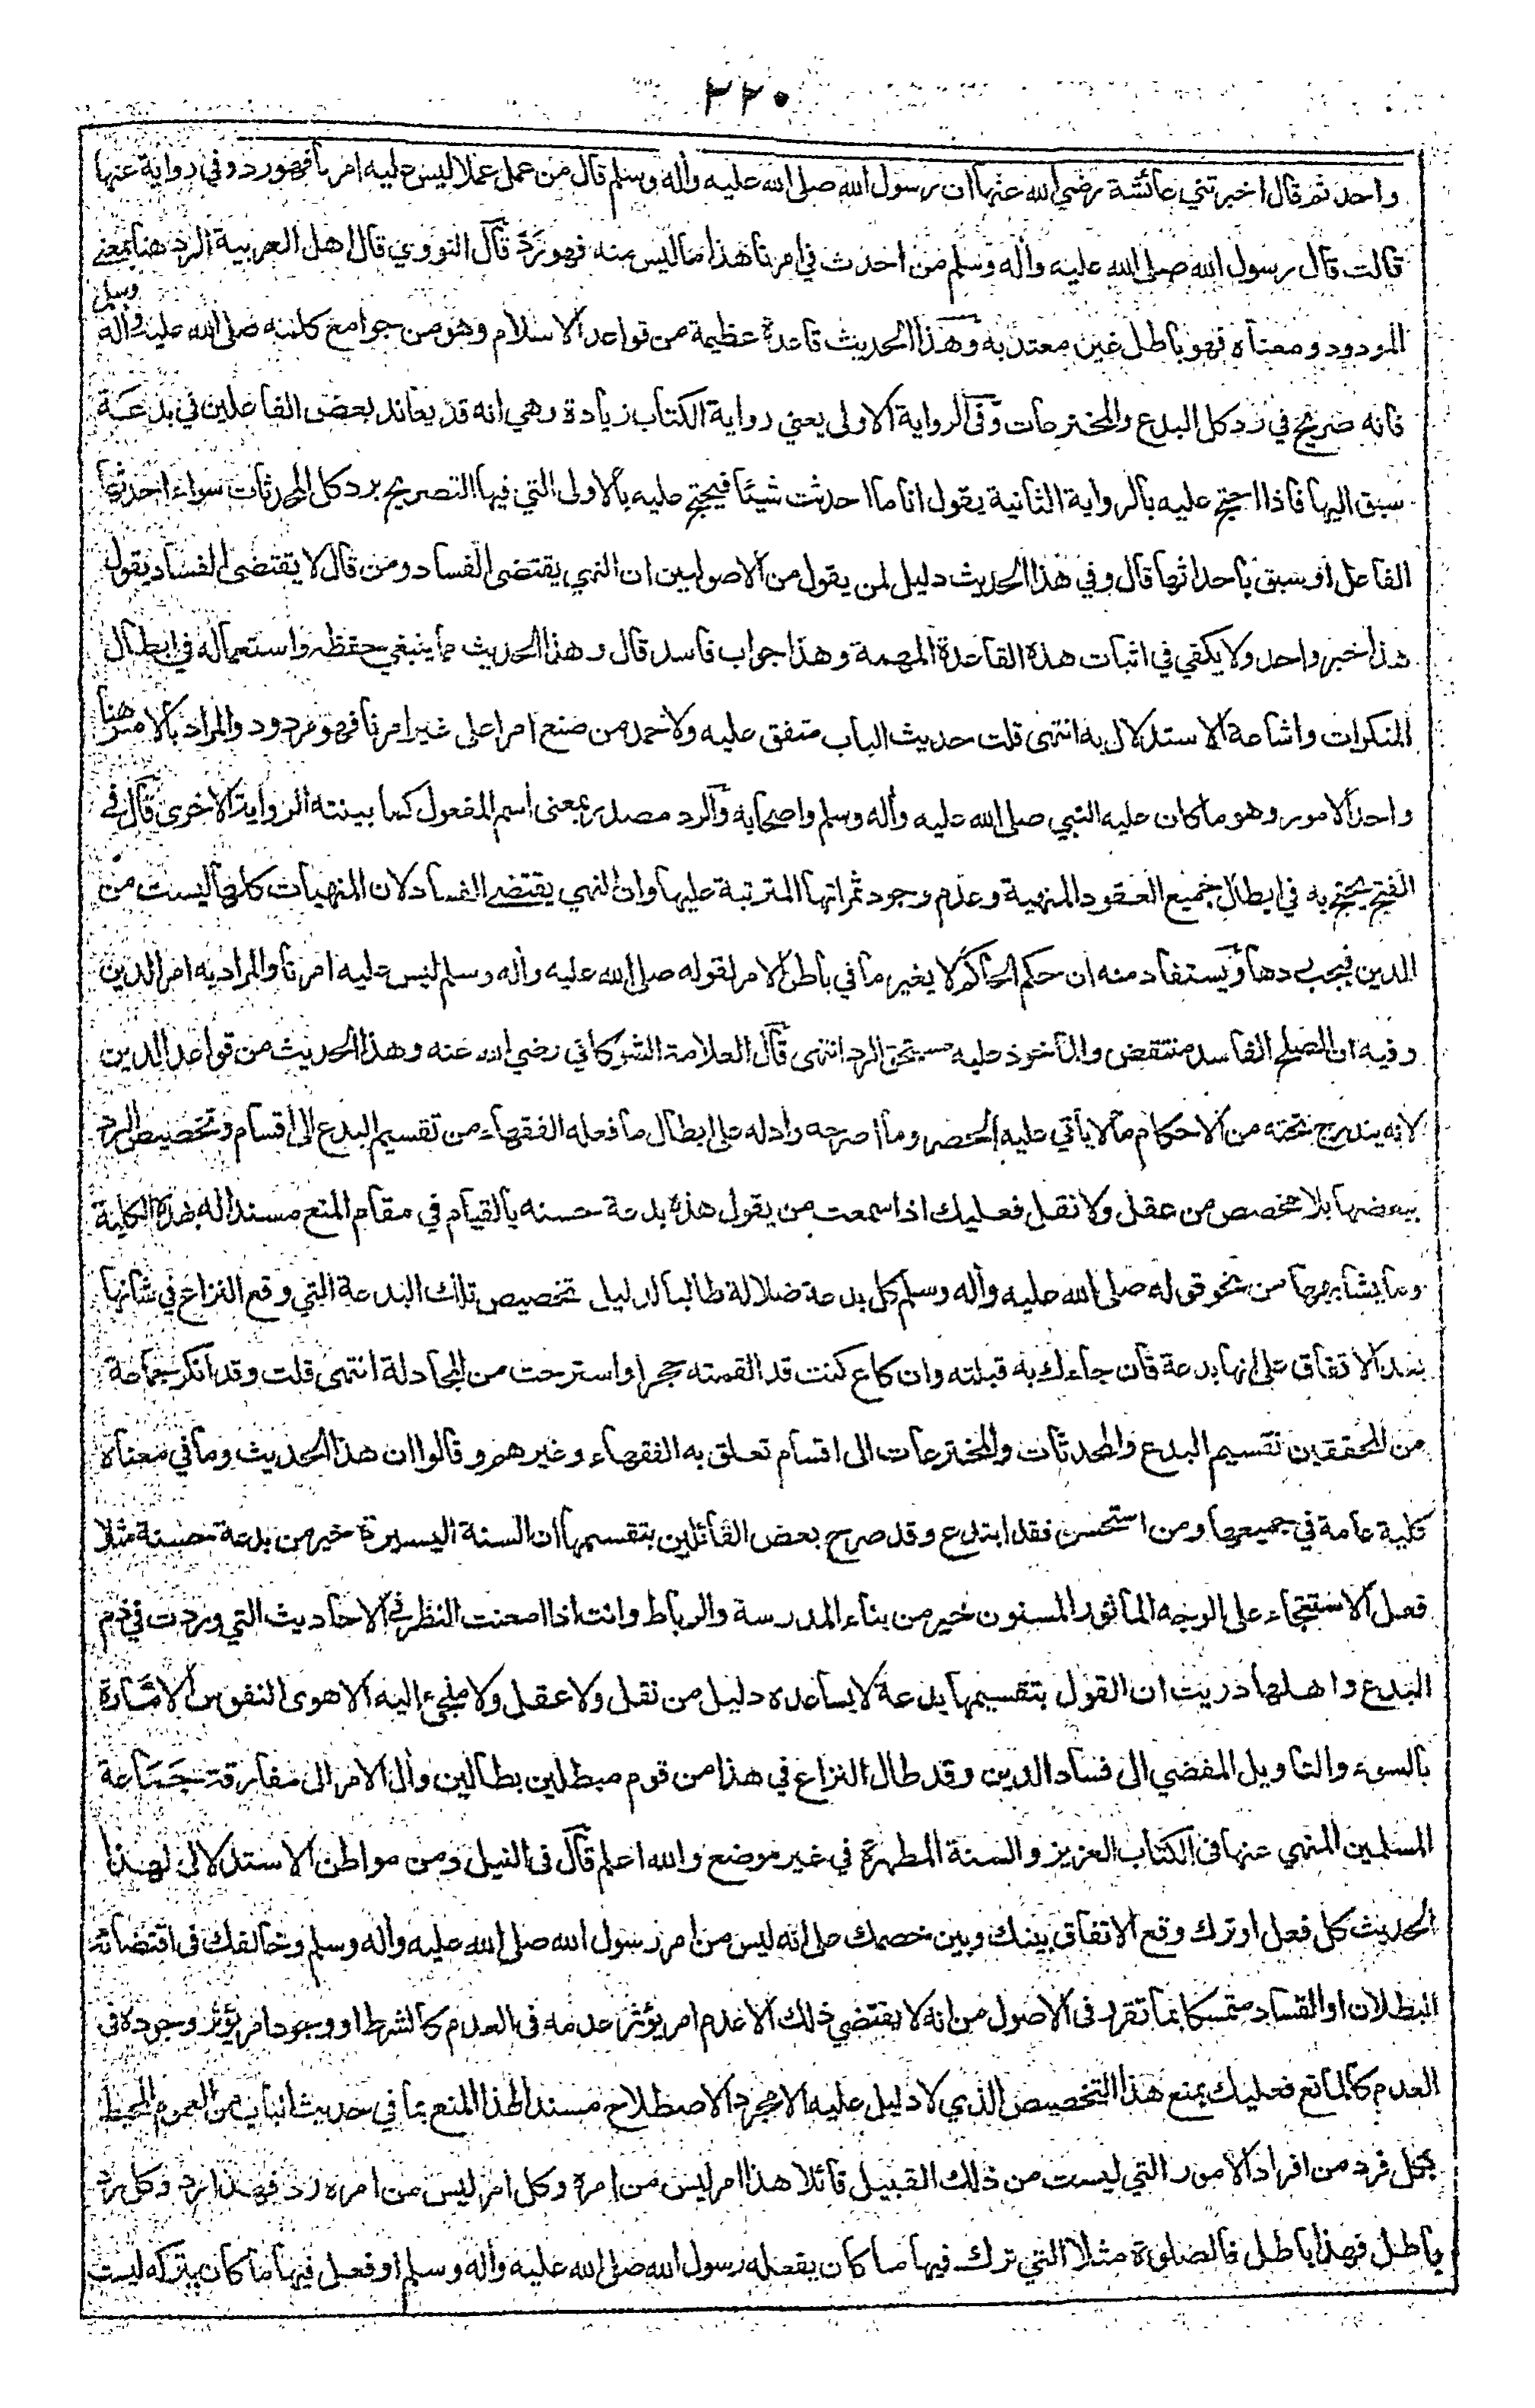 ٢٢٠
واحد ثم قال اخبرتني عائشة رضي الله عنها ان رسول الله صلى الله عليه وأله وسلم قال من عمل عملا ليس عليه امرنا فهورد وفي رواية عنها
قالت قال رسول الله صلى الله عليه وأله وسلم من احدث في امرنا هذا ما ليس منه فهو رَدّ قال النووي قال اهل العربية الرد هنا بمعنى
المردود ومعناه فهو باطل غير معتد به وهذا الحديث قاعدة عظيمة من قواعد الاسلام وهو من جوامع كلمه صلى الله عليه وأله وسلم
فانه صريح في رد كل البدع والمخترعات وفي الرواية الاولى يعني رواية الكتاب زيادة وهي انه قد يعاند بعض الفاعلين في بدعة
سبق اليها فاذا احتج عليه بالرواية الثانية يقول انا ما احدثت شيئا فيحتج عليه بالاولى التي فيها التصريح برد كل المحدثات سواء احدثها
الفاعل او سبق باحداثها قال وفي هذا الحديث دليل لمن يقول من الاصوليين ان النهي يقتضى الفساد ومن قال لا يقتضى الفساد يقول
هذا خبر واحد ولا يكفي في اثبات هذه القاعدة المهمة وهذا جواب فاسد قال وهذا الحديث مما ينبغي حفظه واستعماله في ابطال
المنكرات واشاعة الاستدلال به انتهى قلت حديث الباب متفق عليه ولاحمد من صنع امرا على غير امرنا فهو مردود والمراد بالامر هنا
واحد الامور وهو ما كان عليه النبي صلى الله عليه وأله وسلم واصحابه والرد مصدر بمعنى اسم المفعول كما بينته الرواية الاخرى قال في
الفتح يحتج به في ابطال جميع العقود المنهية وعدم وجود ثمراتها المترتبة عليها وان النهي يقتضي الفساد لان المنهيات كلها ليست من
الدين فيجب ردها ويستفاد منه ان حكم الحاكم لا يغير ما في باطن الامر لقوله صلى الله عليه وأله وسلم ليس عليه امرنا والمراد به امر الدين
وفيه ان الصلح الفاسد منتقض والمأخوذ عليه مستحق الرد انتهى قال العلامة الشوكاني رضي الله عنه وهذا الحديث من قواعد الدين
لانه يندرج تحته من الاحكام ما لا يأتي عليه الحصر وما اصرحه وادله على ابطال ما فعله الفقهاء من تقسيم البدع الى اقسام وتخصيص الرد
ببعضها بلا مخصص من عقل ولا نقل فعليك اذا سمعت من يقول هذه بدعة حسنه بالقيام في مقام المنع مسندا له بهذه الكلية
وما يشابهها من نحو قوله صلى الله عليه وأله وسلم كل بدعة ضلالة طالبا لدليل تخصيص تلك البدعة التي وقع النزاع في شانها
بعد الاتفاق على انها بدعة فان جاءك به قبلته وان كاع كنت قد القمته حجرا واسترحت من المجادلة انتهى قلت وقد انكر جماعة
من المحققين تقسيم البدع والمحدثات والمخترعات الى اقسام تعلق به الفقهاء وغيرهم وقالوا ان هذا الحديث وما في معناه
كلية عامة في جميعها ومن استحسن فقد ابتدع وقد صرح بعض القائلين بتقسيمها ان السنة اليسيرة خير من بدعة حسنة مثلا
فعل الاستنجاء على الوجه المأثور المسنون خير من بناء المدرسة والرباط وانت اذا امعنت النظر في الاحاديث التي وردت في ذم
البدع واهلها دريت ان القول بتقسيمها بدعة لا يساعده دليل من نقل ولا عقل ولا ملجئ اليه الا هوى النفوس الامّارة
بالسوء والتاويل المفضي الى فساد الدين وقد طال النزاع في هذا من قوم مبطلين بطالين وأل الامر الى مفارقة جَمَاعة
المسلمين المنهي عنها فى الكتاب العزيز والسنة المطهرة في غير موضع والله اعلم قال فى النيل ومن مواطن الاستدلال لهذا
الحديث كل فعل او ترك وقع الاتفاق بينك وبين خصمك على انه ليس من امر رسول الله صلى الله عليه وأله وسلم وخالفك فى اقتضائه
البطلان او الفساد متمسكا بما تقرر فى الاصول من انه لا يقتضي ذلك الا عدم امر يؤثر عدمه فى العدم كالشرط او وجود امر يؤثر وجوده فى
العدم كالمانع فعليك بمنع هذا التخصيص الذي لا دليل عليه الا مجرد الاصطلاح مسندا لهذا المنع بما في حديث الباب من العموم المحيط
بكل فرد من افراد الامور التي ليست من ذلك القبيل قائلا هذا امر ليس من امره وكل امر ليس من امره رد فهذا رد وكل رد
باطل فهذا باطل فالصلوة مثلا التي ترك فيها ما كان يفعله رسول الله صلى الله عليه وأله وسلم او فعل فيها ما كان يتركه ليست